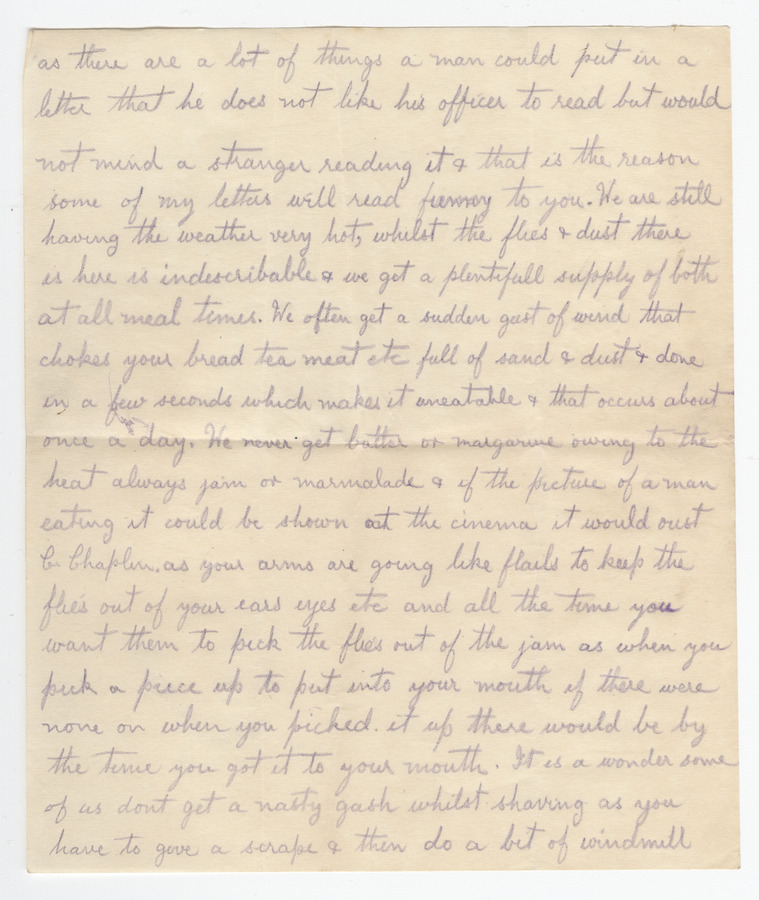 as there are a lot of things a man could put in a
letter that he does not like his officer to read but would
not mind a stranger reading it & that is the reason
some of my letters will read funny to you. We are still
having the weather very hot, whilst the flies & dust there
is here is indescribable & we get a plentifull supply of both
at all meal times. We often get a sudden gust of wind that
chokes your bread tea meat etc full of sand & dust & done
in a few seconds which makes it uneatable & that occurs about
once a day. We never get butter or margarine owing to the
heat always jam or marmalade & if the picture of a man
eating it could be shown at the cinema it would oust
C. Chaplin. as your arms are going like flails to keep the
flies out of your ears eyes etc and all the time you
want them to pick the flies out of the jam as when you
pick a piece up to put into your mouth if there were
none on when you picked it up there would be by
the time you got it to your mouth. It is a wonder some
of us dont get a nasty gash whilst shaving as you
have to gove a scrape & then do a bit of windmill